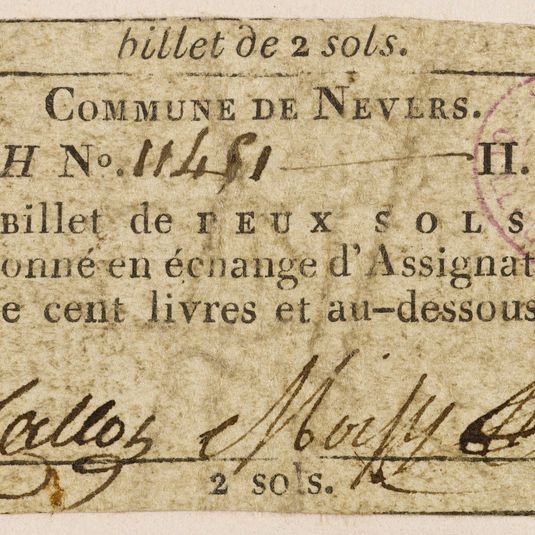 billet de 2 sols.
COMMUNE DE NEVERS.
H No. 11481 II.
Billet de DEUX SOLS
onné en échange d'Assignat
e cent livres et au-dessous
2 sols.